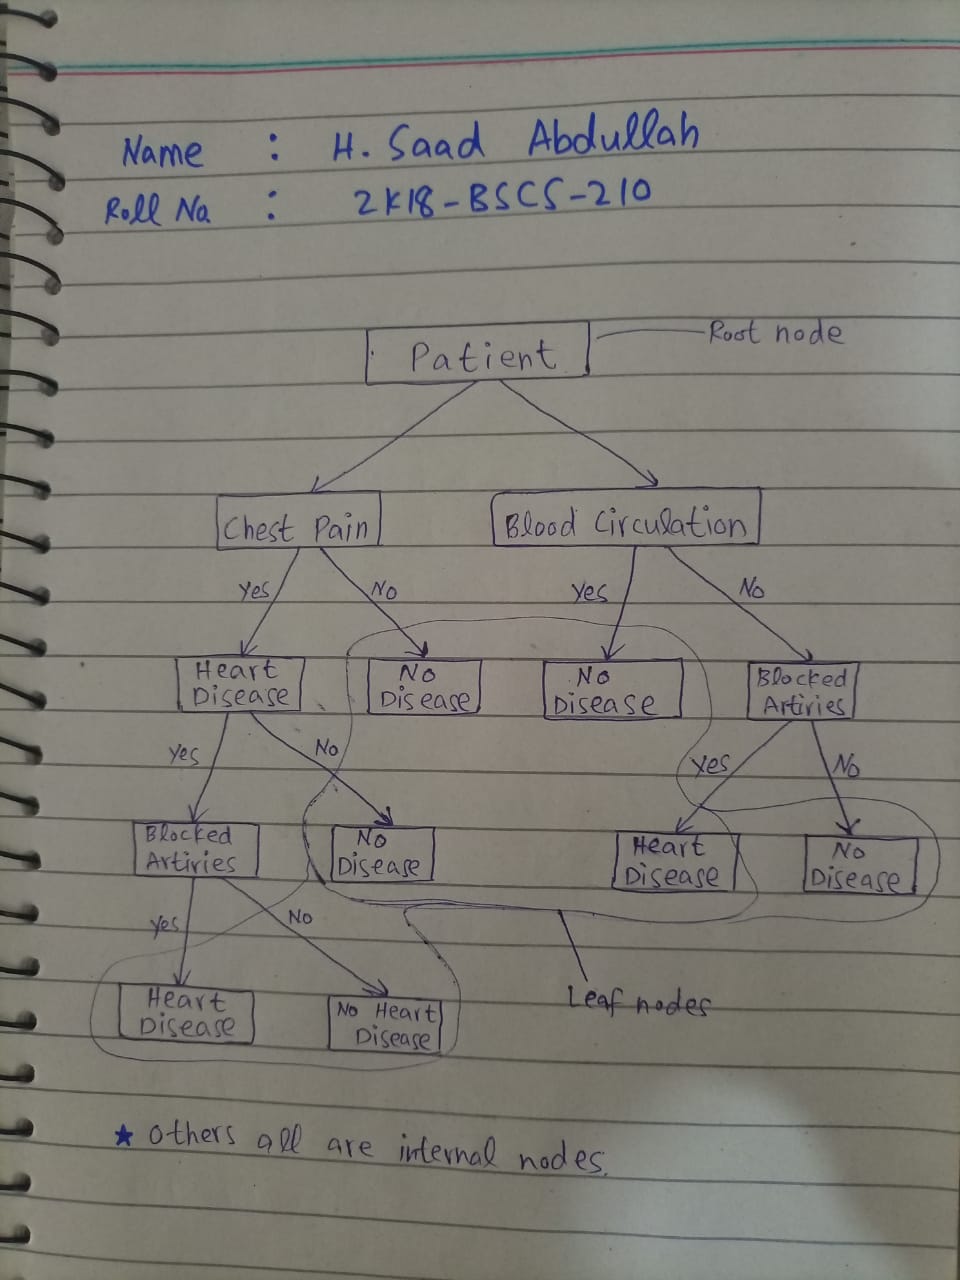 Name : H. Saad Abdullah
Roll No. : 2K18-BSCS-210
Patient
Root node
Chest Pain
Blood Circulation
Yes
No
Yes
No
Heart
Disease
No
Disease
No
Disease
Blocked
Artiries
Yes
No
Yes
No
Blocked
Artiries
No
Disease
Heart
Disease
No
Disease
Yes
No
Heart
Disease
No Heart
Disease
Leaf nodes
★ Others all are internal nodes.